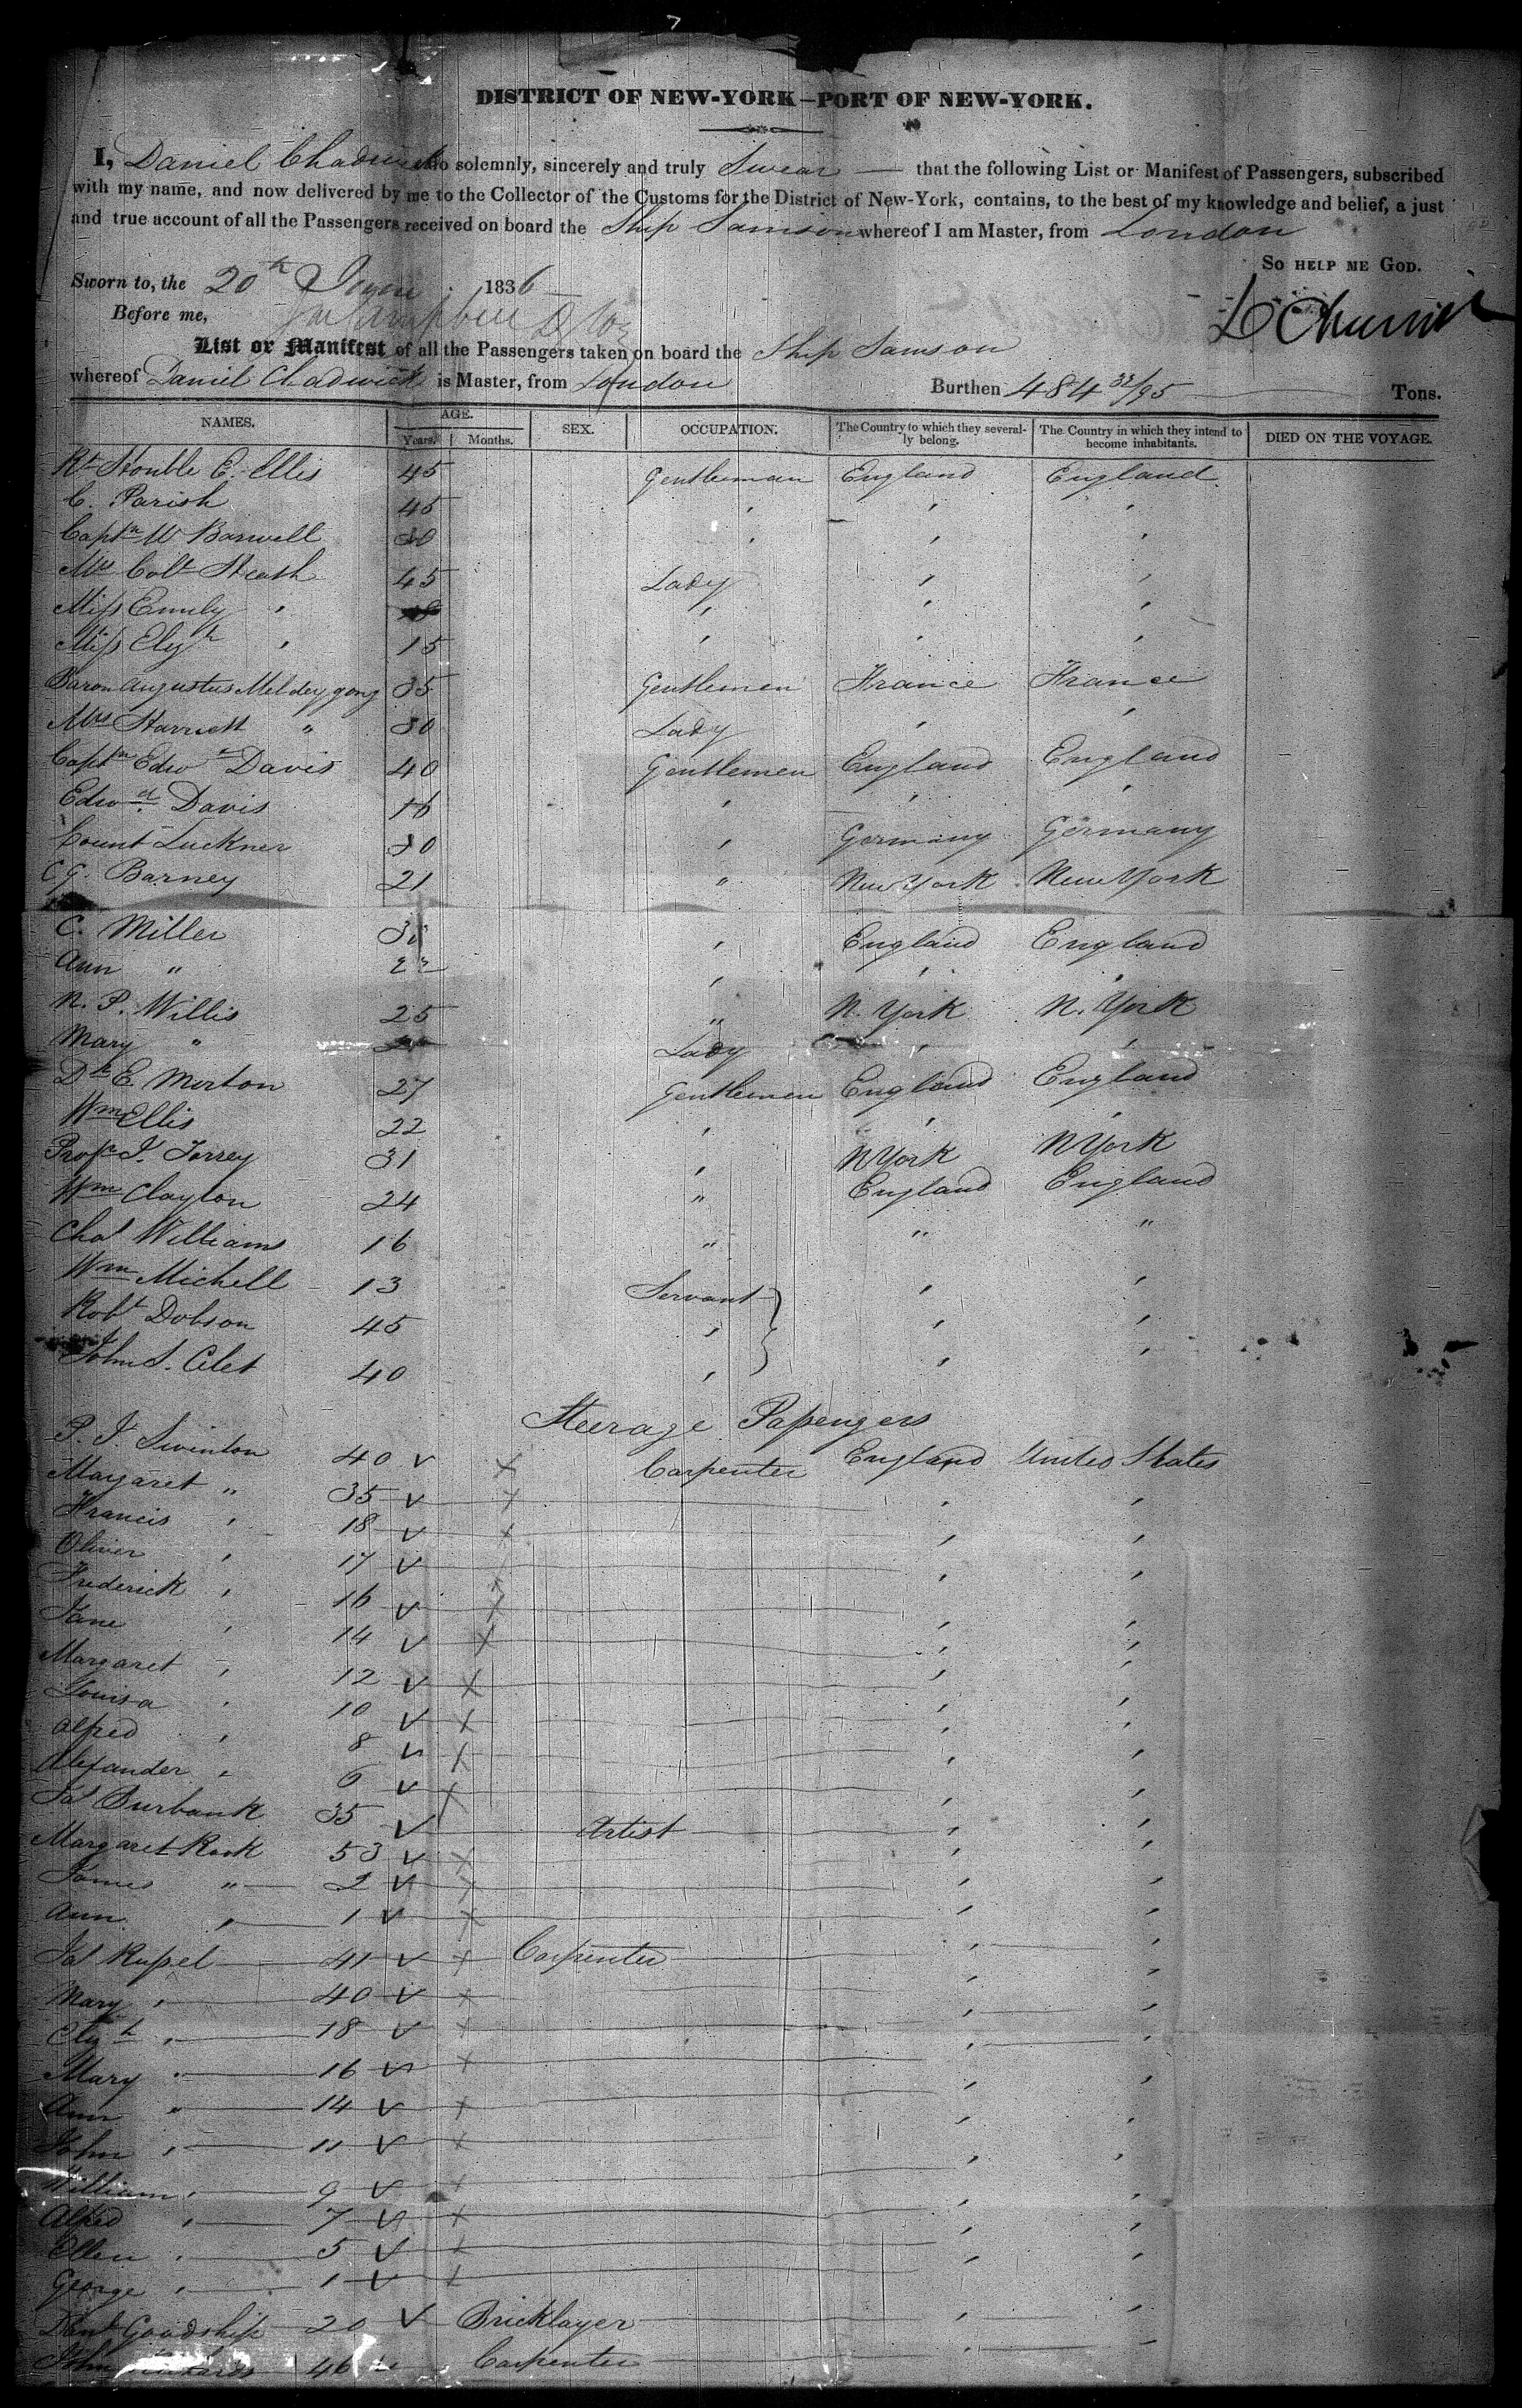 DISTRICT OF NEW-YORK—PORT OF NEW-YORK.
I, Daniel Chadwick do solemnly, sincerely and truly Swear — that the following List or Manifest of Passengers, subscribed
with my name, and now delivered by me to the Collector of the Customs for the District of New-York, contains, to the best of my knowledge and belief, a just
and true account of all the Passengers received on board the Ship Samson whereof I am Master, from London
So HELP ME GOD.
Sworn to, the 20th 1836
Before me,
List or Manifest of all the Passengers taken on board the Ship Samson
whereof Daniel Chadwick is Master, from London Burthen 484 32/95 Tons.
NAMES. AGE. Years. Months. SEX. OCCUPATION. The Country to which they severally belong. The Country in which they intend to become inhabitants. DIED ON THE VOYAGE.
Rt Honble E. Ellis 45 Gentleman England England
C. Parish 45 " " "
Captn W Barwell 30 " " "
Mrs Coln Heath 45 Lady " "
Miss Emily " " " "
Miss Elizth " 15 " " "
Baron Augustus 35 Gentlemen France France
Mrs Harriett " 30 Lady " "
Captn Edwd Davis 40 Gentlemen England England
Edwd Davis 16 " " "
Count Luckner 30 " Germany Germany
C.G. Barney 21 " New York New York
C. Miller " England England
Ann " " " "
N. P. Willis 25 " N. York N. York
Mary " Lady " "
Dr E. Morton 27 Gentlemen England England
Wm Ellis 22 " "
Profr J. Torrey 31 " N York N York
Wm Clayton 24 " England England
Chas Williams 16 " " "
Wm Michell 13 Servant " "
Robt Dobson 45 " " "
John S. 40 " " "
Steerage Passengers
P. J. Swinton 40 v x Carpenter England United States
Margaret " 35 v x " "
Francis " 18 v x " "
Oliver " 17 v " "
Frederick " 16 v x " "
Jane " 14 v x " "
Margaret " 12 v x " "
Louisa " 10 v x " "
Alfred " 8 v x " "
Alexander " 6 v x " "
Jas Burbank 35 v Artist " "
Margaret 53 v x " "
James " 2 v x " "
Ann " 1 v x " "
Jas Russel 41 v x Carpenter " "
Mary " 40 v x " "
Elizth " 18 v x " "
Mary " 16 v x " "
Ann " 14 v x " "
John " 11 v x " "
William " 9 v x " "
Alfred " 7 v x " "
Ellen " 5 v x " "
George " 1 v x
Danl Goodship 20 v Bricklayer " "
John 46 Carpenter " "